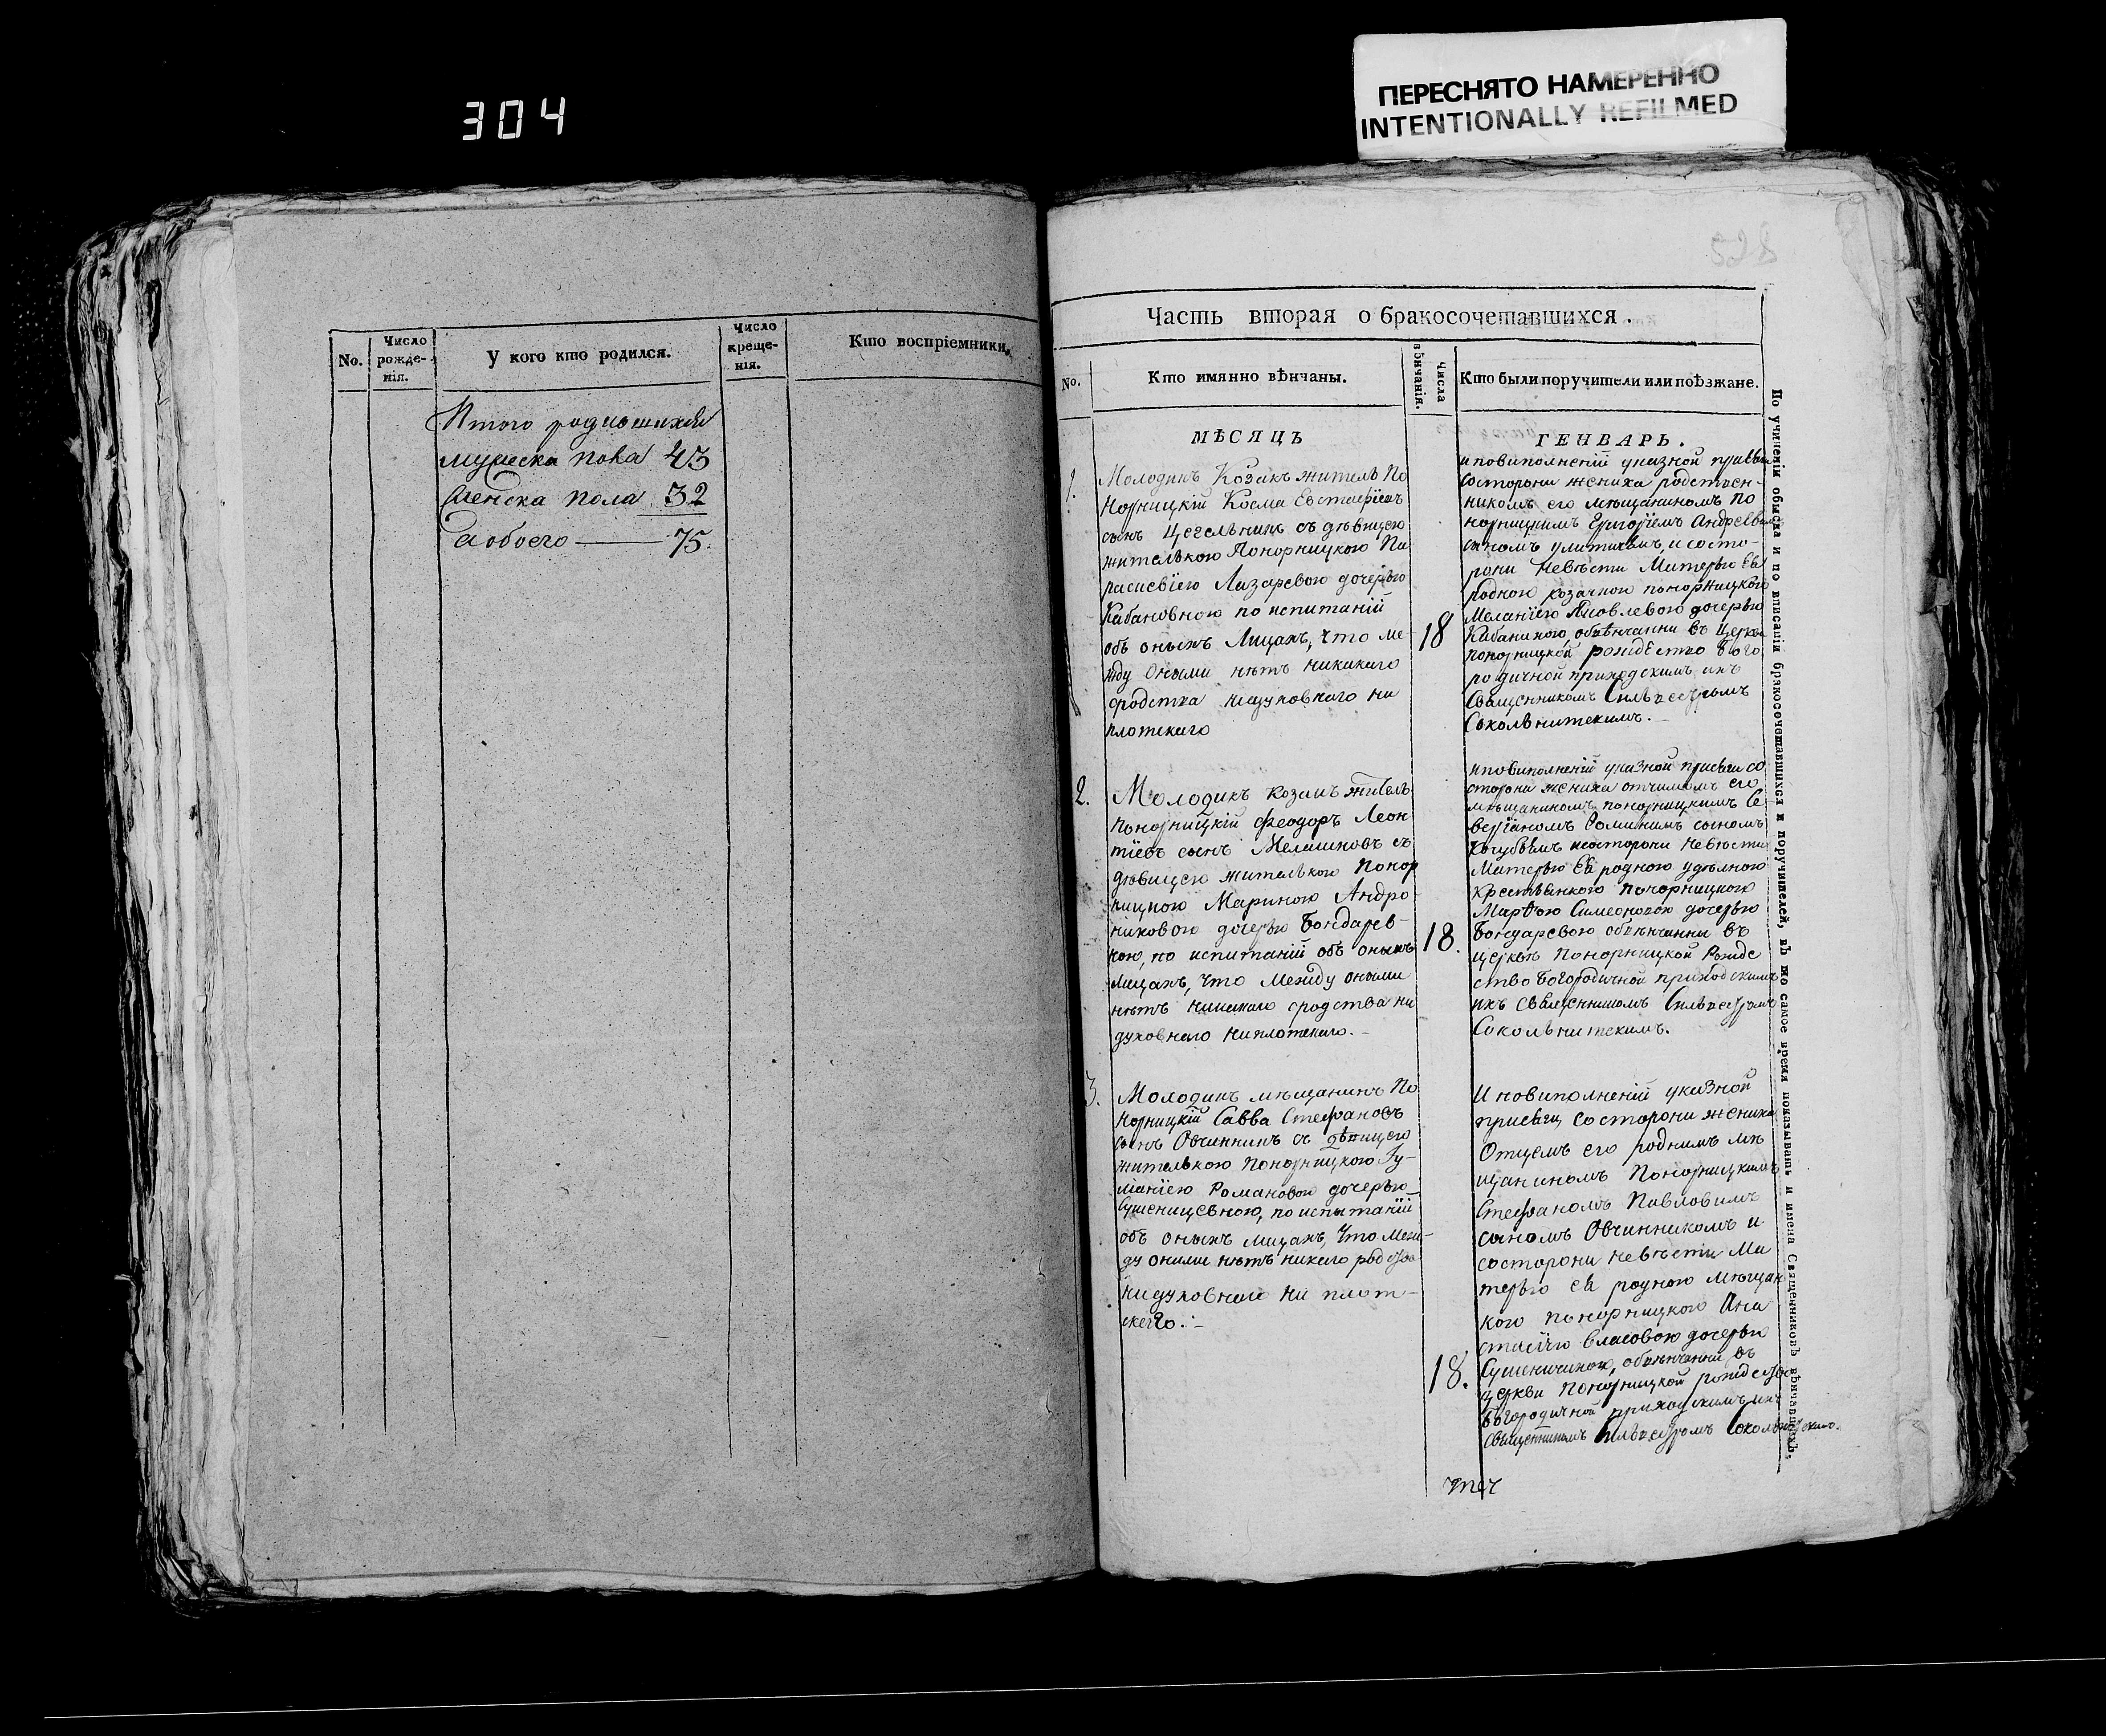 304
ПЕРЕСНЯТО НАМЕРЕННО
INTENTIONALLY REFILMED
No.
Число рожде-нія.
У кого кто родился.
Число креще-нія.
Кто воспріемники.
Итого родившихся
мужеска пола 43
женска пола 32
а обоего — 75.
Часть вторая о бракосочетавшихся.
No.
Кто имянно вѣнчаны.
Числа вѣнчанія.
Кто были поручители или поѣзжане.
МѢСЯЦЪ
ГЕНВАРЬ.
1.
Молодикъ Козакъ житель По
норницкій Косма Евстафіевъ
сынъ Цегельникъ съ дѣвицею
жителькою Понорницкою Па
расковіею Лазаревою дочерью
Кабановною по испитаній
объ оныхъ Лицахъ, что ме-
жду оными нѣтъ никакаго
сродства ни духовнаго ни
плотскаго
18
и повиполненій указной присяги
состорони жениха родствен-
никомъ его мѣщаниномъ по
норницкимъ Григоріемъ Андреевим
сыномъ улитичемъ, и состо-
рони невѣсти Матерью Ея
родною козачкою понорницкою
Меланіею Яковлевою дочерью
Кабанихою, обвѣнчанни въ Церкви
понорницкой рождество Бого
родичной приходскимъ ихъ
Священникомъ Сильвестромъ
Сокольнитскимъ.
2.
Молодикъ козакъ житель
понорницкій Феодоръ Леон
тіевъ сынъ Мелашковъ съ
дѣвицею жителькою Понор
ницкою Мариною Андро-
никовою дочерью Бондарев-
ною, по испитаній объ оныхъ
лицахъ, что между оными
нѣтъ никакаго сродства ни
духовнаго ни плотскаго.
18.
и повиполненій указной присяги со
сторони жениха отчимомъ его
мѣщаниномъ понорницкимъ Се
веріаномъ сыномъ
Кочубѣемъ и состорони невѣсти
Матерью Ея родною удѣлною
крестьянкою понорницкою
Марѳою Симеоновою дочерью
Бондаревою обвѣнчанни въ
церкви Понорницкой Рожде
ство Богородичной приходскимъ
ихъ священникомъ Сильвестромъ
Сокольнитскимъ.
3.
Молодикъ мѣщанинъ По
норницкій Савва Стефановъ
сынъ Овчинникъ съ дѣвицею
жителькою Понорницкою Іу-
ліаніею Романовою дочерью
Сушеницевною, по испытаній
объ оныхъ лицахъ, что меж-
ду оними нѣтъ никаго родства
ни духовнаго ни плот-
скаго.
18.
И повиполненій указной
присяги состорони жениха
Отцемъ его роднимъ мѣ
щаниномъ Понорницкимъ
Стефаномъ Павловимъ
сыномъ Овчинникомъ и
состорони невѣсти Ма
терью ея родною мѣщан
кою понорницкою Ана
стасіею Власовою дочерью
Сушеничихою, обвѣнчанни въ
церкви Понорницкой рождество
Богородичной приходскимъ ихъ
священникомъ Сильвестромъ Сокольнитскимъ.
По учиненіи обыска и по вписаніи бракосочетавшихся и поручителей, въ то самое время показывать и имена Священниковъ вѣнчавшихъ.